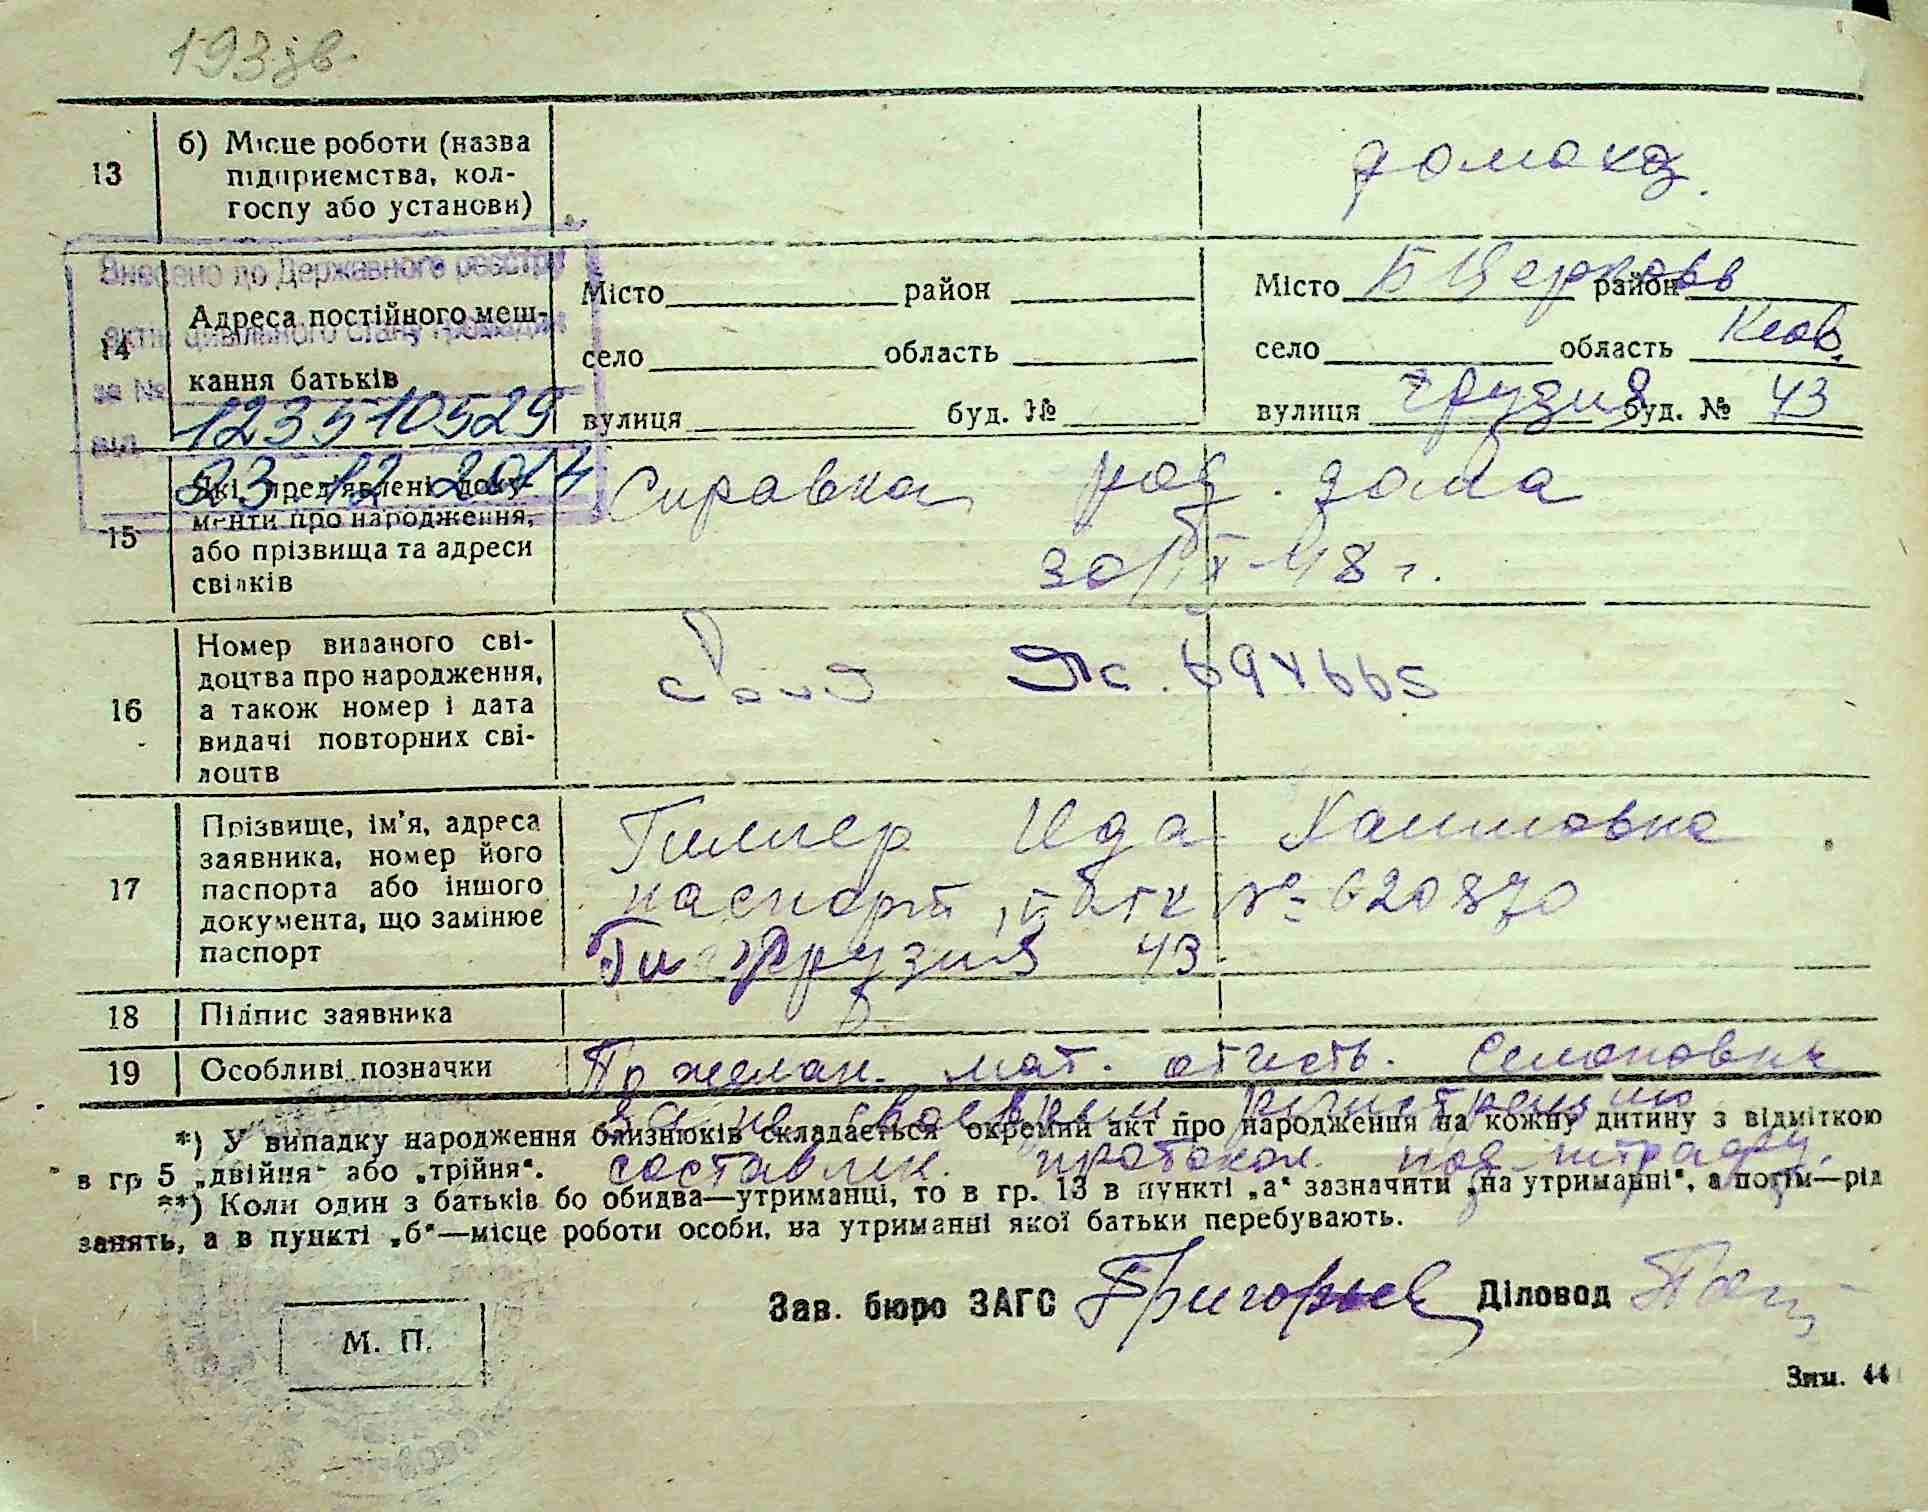 193зв.
13
б) Місце роботи (назва
підприємства, кол-
госпу або установи)
домохоз.
Внесено до Державного реєстру
актів цивільного стану громадян
за № 123510529
від 23.12.2014
14
Адреса постійного меш-
кання батьків
Місто район
село область
вулиця буд. №
Місто Б Церковь район
село область Киев.
вулиця Грузия буд. № 43
15
Які пред'явлені доку-
менти про народження,
або прізвища та адреси
свідків
Справка род. дома
48 г.
16
Номер виданого сві-
доцтва про народження,
а також номер і дата
видачі повторних сві-
доцтв
17
Прізвище, ім'я, адреса
заявника, номер його
паспорта або іншого
документа, що замінює
паспорт
Гилпер Ида Хаимовна
паспорт № 620870
Грузия 43
18
Підпис заявника
19
Особливі позначки
По желан. мат. отчеств. Семеновна
За не своеврем регистрацию
составлен. протокол. под штраф
*) У випадку народження близнюків складається окремий акт про народження на кожну дитину з відміткою
в гр 5 „двійня“ або „трійня“.
**) Коли один з батьків бо обидва—утриманці, то в гр. 13 в пункті „а“ зазначити „на утриманні“, а потім—рід
занять, а в пункті „б“—місце роботи особи, на утриманні якої батьки перебувають.
Зав. бюро ЗАГС Григорьев Діловод
М. П.
Зим. 44